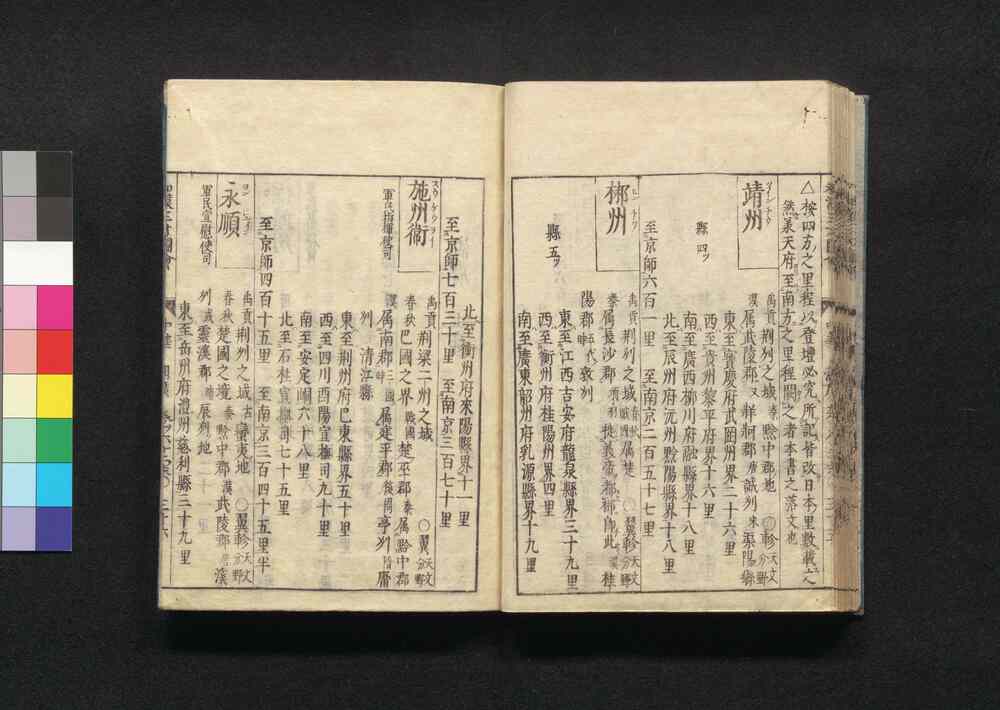 △按四方之里程以登壇必究所記皆改日本里數載之
然義天府至南方之里程闕之者本書之落文也
靖州
縣四ツ
禹貢荊州之城 秦黔中郡地 ○軫天文分野
漢属武陵郡 又牂牁郡 唐誠州 宋渠陽縣
東至寶慶府武岡州界二十六里
西至貴州黎平府界十六里
南至廣西柳川府融縣界十八里
北至辰州府沅州黔陽縣界十八里
至京師六百一里 至南京二百五十七里
郴州
縣五ツ
禹貢荊州之域 春秋戰國属楚 ○翼軫天文分野
秦属長沙郡 項羽徙義帝都郴即此 漢桂
陽郡 五代敦州
東至江西吉安府龍泉縣界三十九里
西至衡州府桂陽州界四里
南至廣東韶州府乳源縣界十九里
北至衡州府來陽縣界十一里
至京師七百三十里 至南京三百七十里
施州衞
軍民指揮使司
禹貢荊梁二州之城 ○翼軫天文分野
春秋巴國之界 戰國楚巫郡 秦属黔中郡
漢属南郡 三國属建平郡 後周亭州 隋庸
州 清江縣
東至荊州府巴東縣界五十里
西至四川酉陽宣撫司九十里
南至安定峒六十八里
北至石柱宣撫司七十五里
至京師四百十五里 至南京三百四十五里半
永順
軍民宣慰使司
禹貢荊州之城 古蠻夷地 ○翼軫天文分野
春秋楚國之境 秦黔中郡 漢武陵郡 唐溪
州 或靈漢郡 隋辰州地
東至岳州府澧州慈利縣三十九里